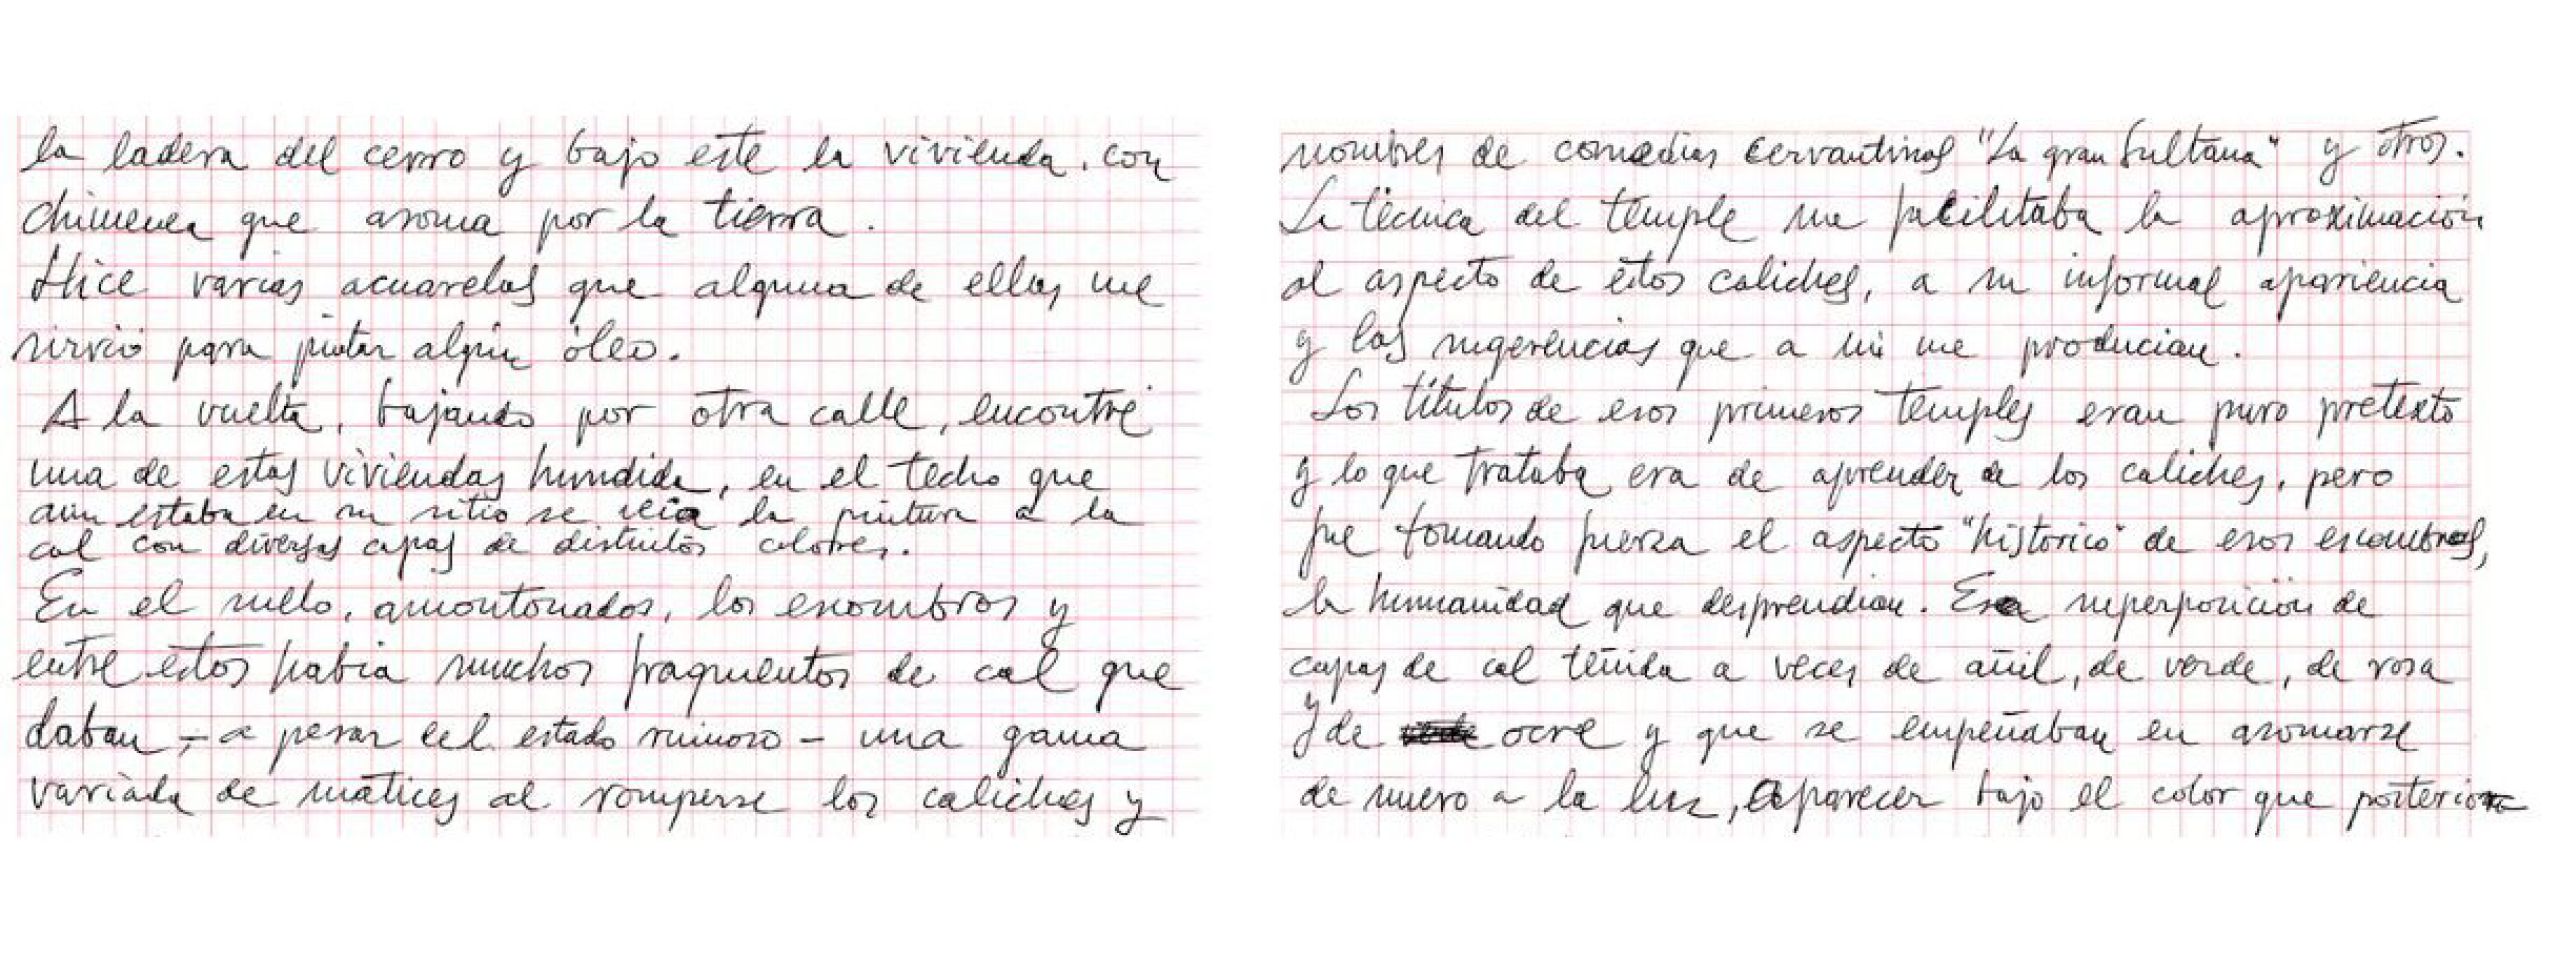 la ladera del cerro y bajo este la vivienda, con
chimenea que asoma por la tierra.
Hice varias acuarelas que alguna de ellas me
sirvió para pintar algún óleo.
A la vuelta, bajando por otra calle, encontré
una de estas viviendas hundida, en el techo que
aún estaba en su sitio se veía la pintura a la
cal con diversas capas de distintos colores.
En el suelo, amontonados, los escombros y
entre estos había muchos fragmentos de cal que
daban - a pesar del estado ruinoso - una gama
variada de matices al romperse los caliches y
nombres de comedias cervantinas "La gran Sultana" y otros.
La técnica del temple me facilitaba la aproximación
al aspecto de estos caliches, a su informal apariencia
y las sugerencias que a mi me producian.
Los títulos de esos primeros temples eran puro pretexto
y lo que trataba era de aprender de los caliches, pero
fue tomando fuerza el aspecto "historico" de esos escombros,
la humanidad que desprendian. Esa superposición de
capas de cal teñida a veces de añil, de verde, de rosa
y de ocre y que se empeñaban en asomarse
de nuevo a la luz, aparecer bajo el color que posterior